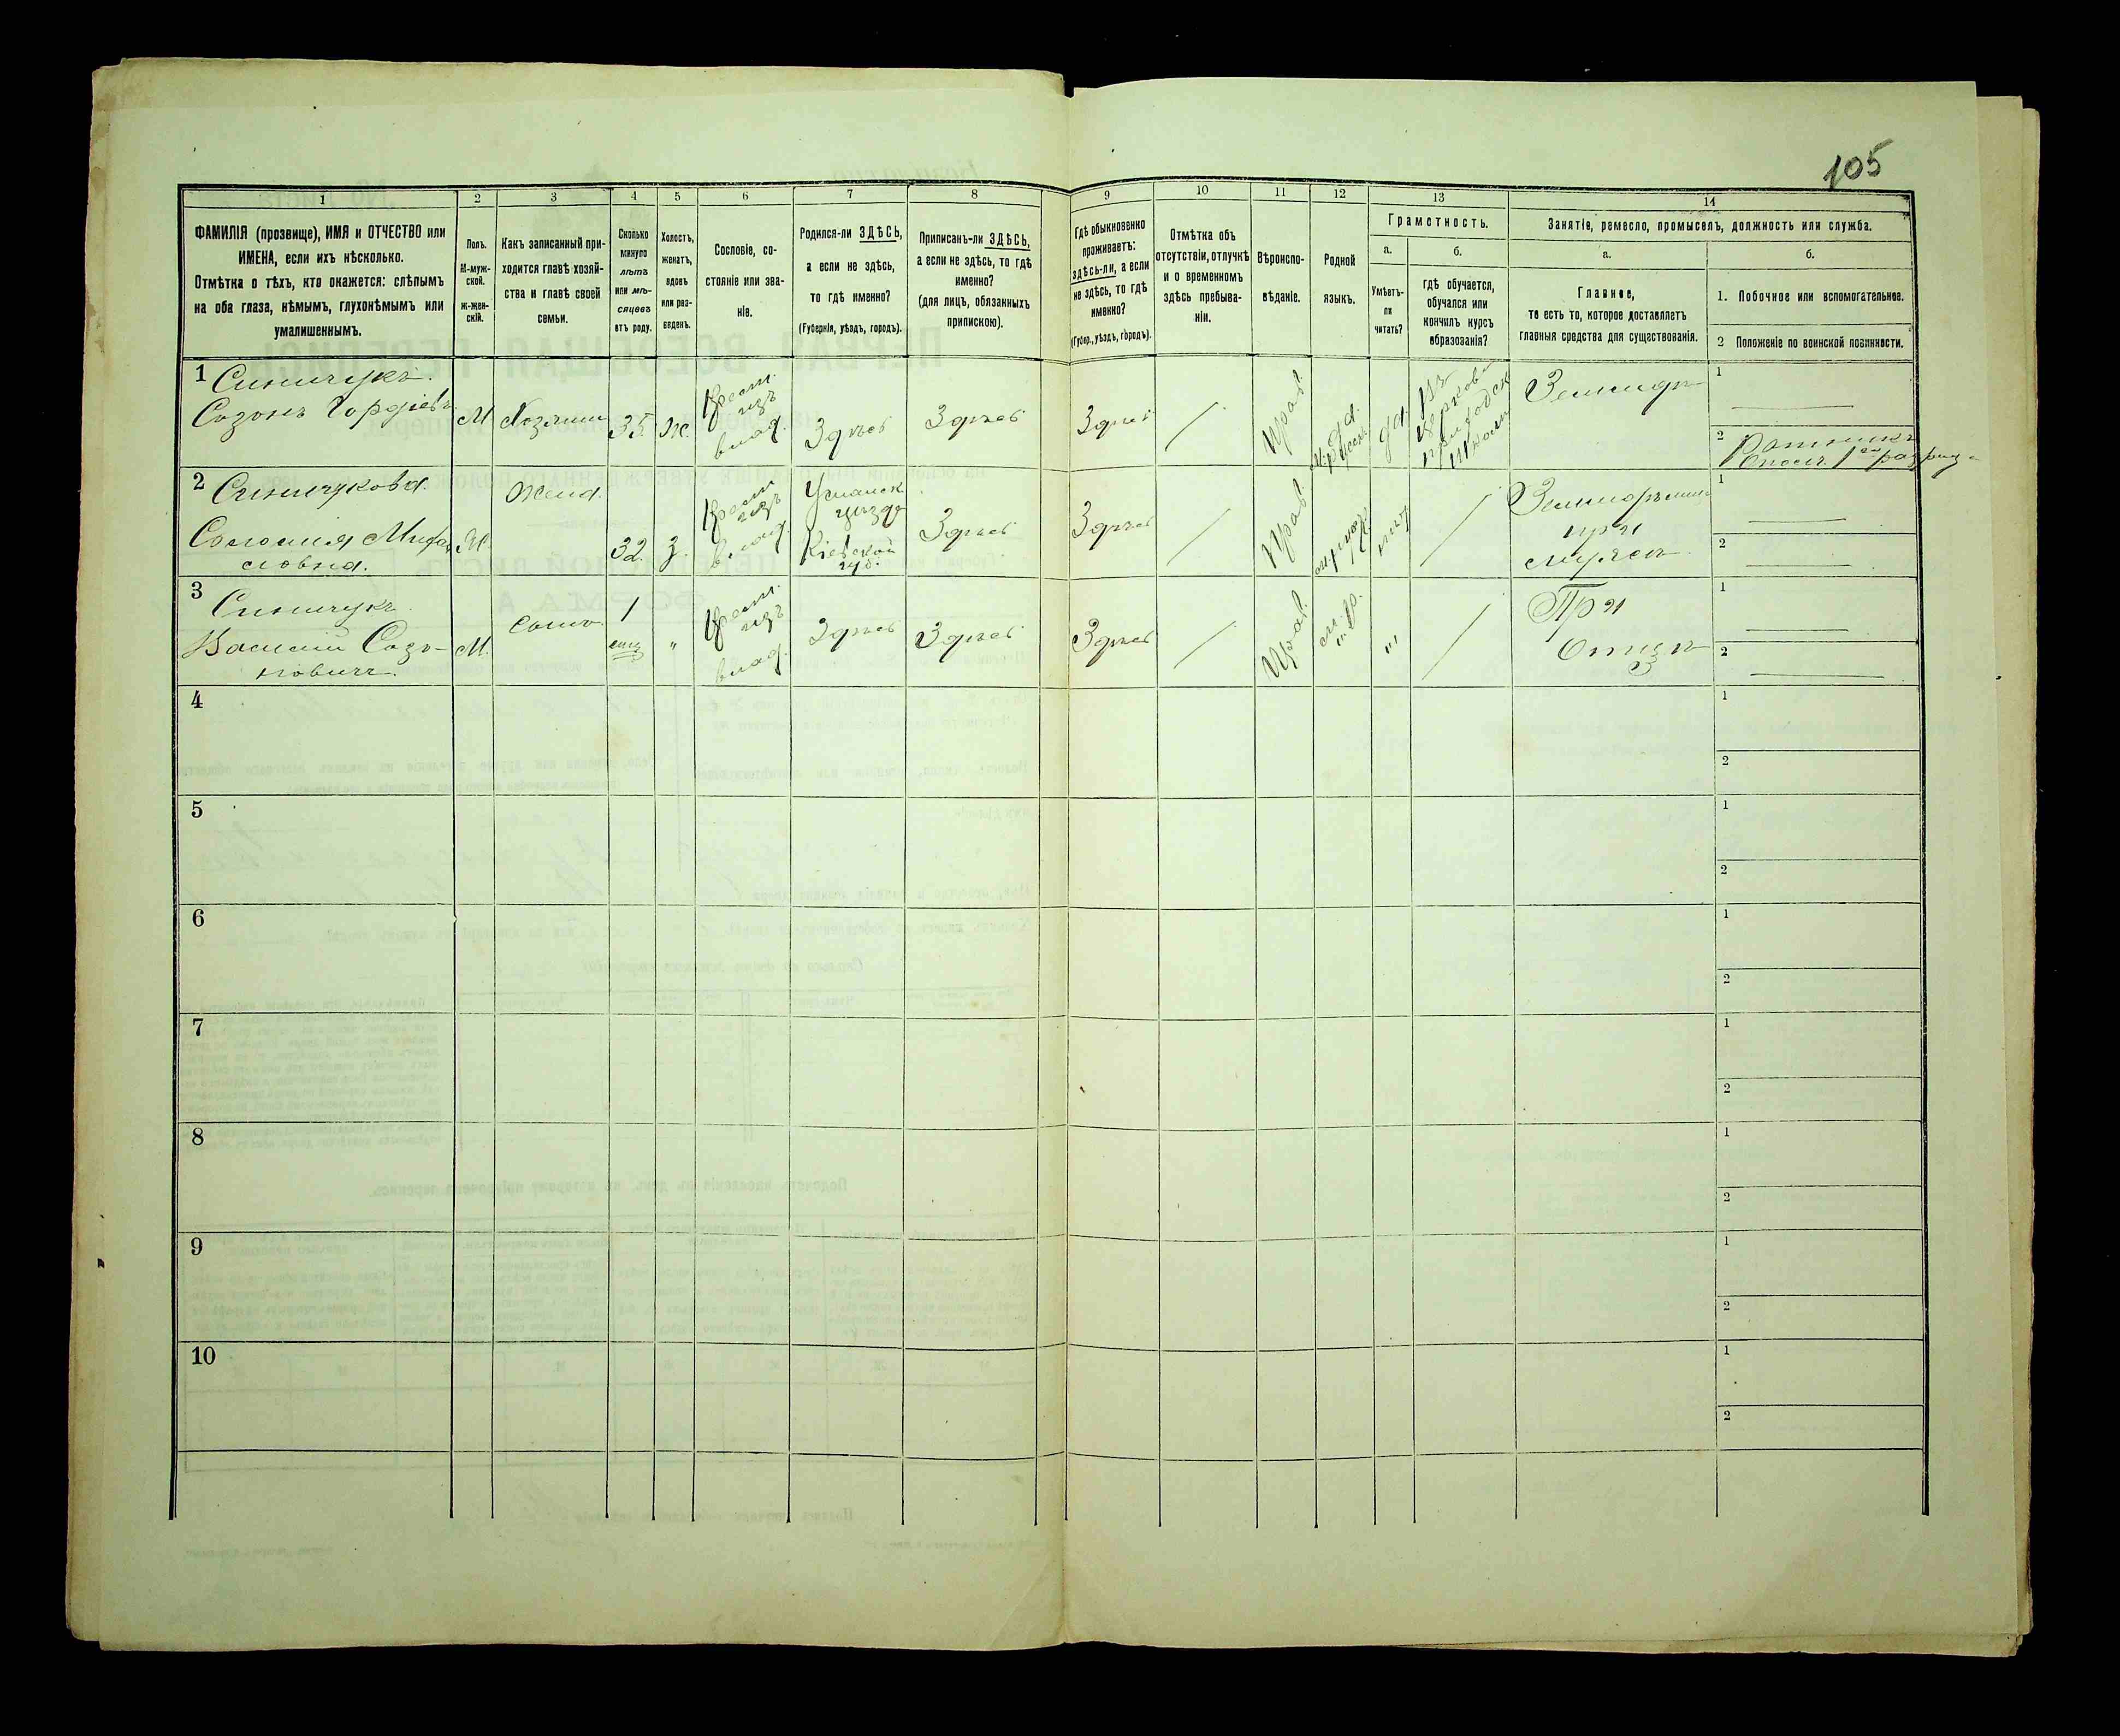 105
1
2
3
4
5
6
7
8
9
10
11
12
13
14
ФАМИЛІЯ (прозвище), ИМЯ и ОТЧЕСТВО или
ИМЕНА, если ихъ нѣсколько.
Отмѣтка о тѣхъ, кто окажется: слѣпымъ
на оба глаза, нѣмымъ, глухонѣмымъ или
умалишеннымъ.
Полъ.
М-муж-
ской.
ж-жен-
скій.
Какъ записанный при-
ходится главѣ хозяй-
ства и главѣ своей
семьи.
Сколько
минуло
лѣтъ
или мѣ-
сяцевъ
отъ роду.
Холостъ,
женатъ,
вдовъ
или раз-
веденъ.
Сословіе, со-
стояніе или зва-
ніе.
Родился-ли ЗДѢСЬ,
а если не здѣсь,
то гдѣ именно?
(Губернія, уѣздъ, городъ).
Приписанъ-ли ЗДѢСЬ,
а если не здѣсь, то гдѣ
именно?
(для лицъ, обязанныхъ
припискою).
Гдѣ обыкновенно
проживаетъ:
здѣсь-ли, а если
не здѣсь, то гдѣ
именно?
(Губер., уѣздъ, городъ).
Отмѣтка объ
отсутствіи, отлучкѣ
и о временномъ
здѣсь пребыва-
ніи.
Вѣроиспо-
вѣданіе.
Родной
языкъ.
Грамотность.
а.
Умѣетъ-
ли
читать?
б.
гдѣ обучается,
обучался или
кончилъ курсъ
образованія?
Занятіе, ремесло, промыселъ, должность или служба.
а.
Главное,
то есть то, которое доставляетъ
главныя средства для существованія.
б.
1. Побочное или вспомогательное.
2 Положеніе по воинской повинности.
1 Синичукъ
Созонъ Гордіевъ
М
Хозяин
35.
Ж.
Крест.
изъ
влад.
Здѣсь
Здѣсь
Здѣсь
Прав.
да.
Из
церковн
приходск
школы
Земледѣ
1
2 Ратникъ
1го разряда
2 Синичукова
Соломия
словна.
Ж.
жена.
32.
З.
Крест
изъ
влад.
Уманск
уѣзда
Кіевской
губ.
Здѣсь
Здѣсь
Прав.
нѣт
при
мужѣ
1
2
3 Синичукъ
Василий Созо-
новичъ.
М.
сынъ.
1
мѣс
"
Крест.
изъ
влад.
Здѣсь
Здѣсь
Здѣсь
Прав.
"
При
Отцѣ
1
2
4
1
2
5
1
2
6
1
2
7
1
2
8
1
2
9
1
2
10
1
2